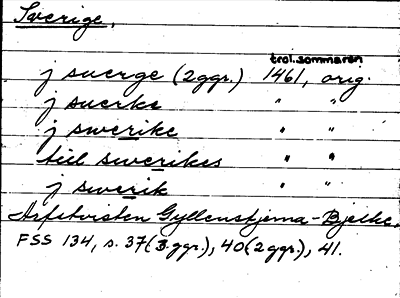 Sverige.
trol. sommaren
j suerge (2 ggr.) 1461, orig.
j suerke " "
j swerike " "
till swerikes " "
j swerik " "
Arfstvisten Gyllenstjerna-Bjelke.
FSS 134, s. 37 (3 ggr), 40 (2 ggr), 41.